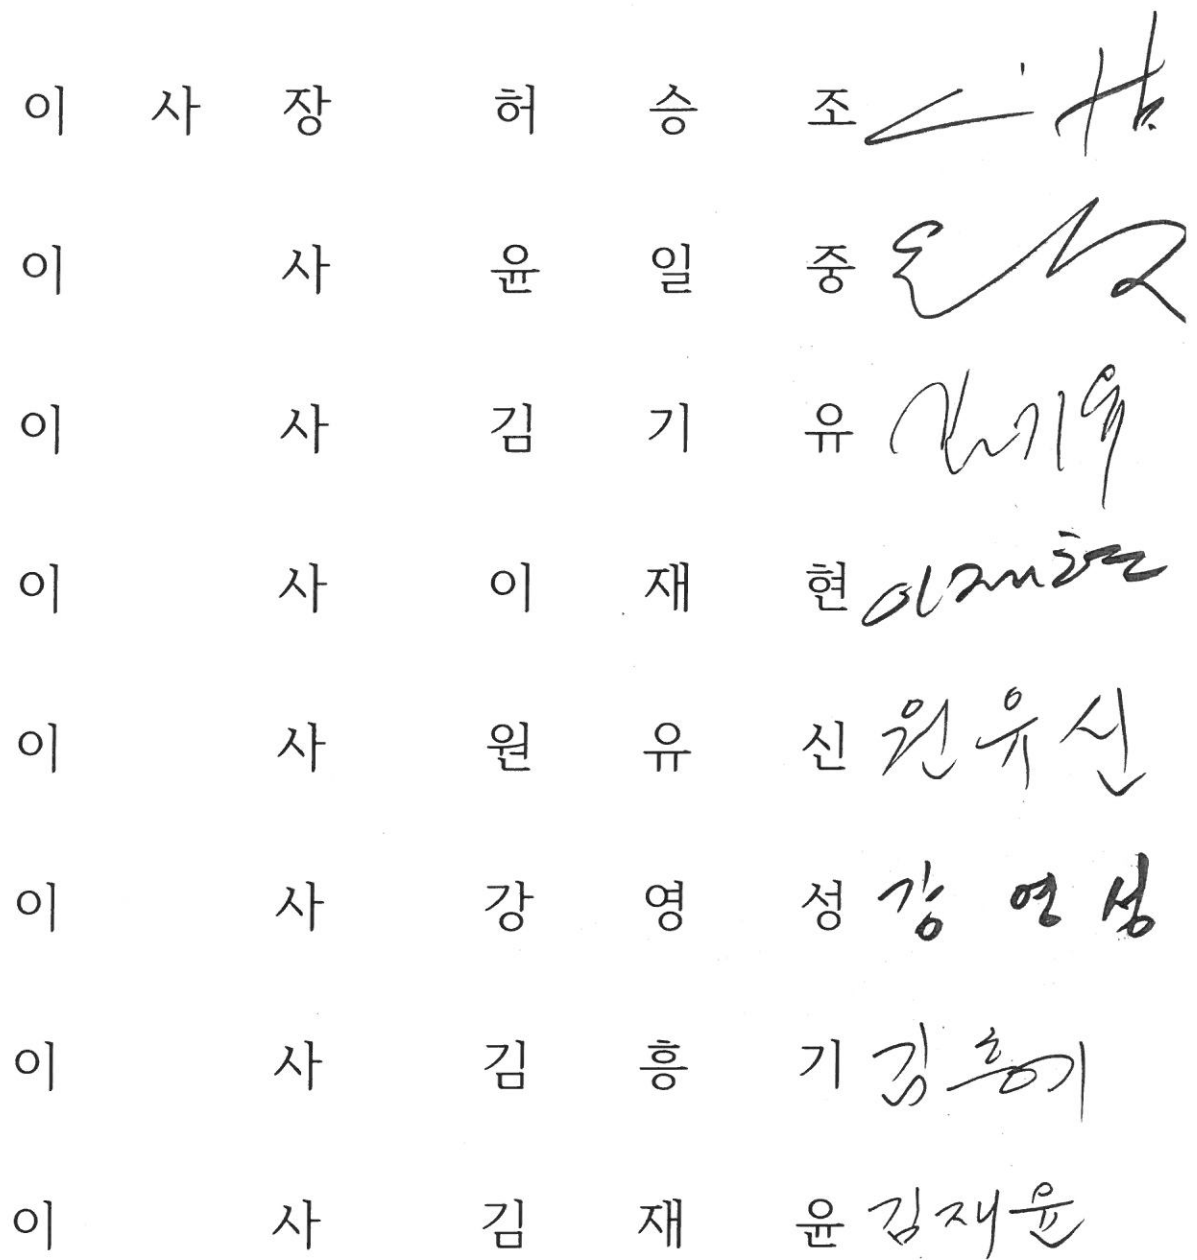 이 사 장 허 승 조
이 사 윤 일 중
이 사 김 기 유 김기유
이 사 이 재 현 이재현
이 사 원 유 신 원유신
이 사 강 영 성 강영성
이 사 김 흥 기 김흥기
이 사 김 재 윤 김재윤